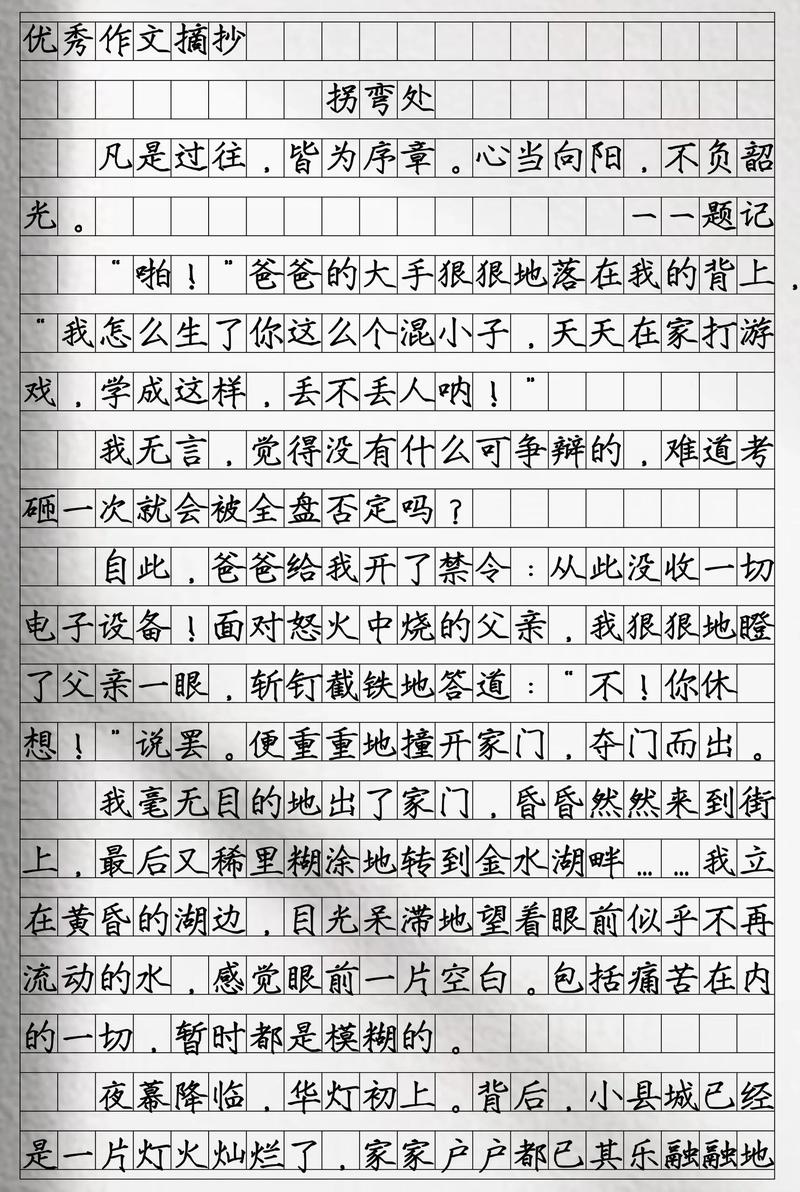 优秀作文摘抄
拐弯处
凡是过往，皆为序章。心当向阳，不负韶
光。一一题记
“啪！”爸爸的大手狠狠地落在我的背上，
“我怎么生了你这么个混小子，天天在家打游
戏，学成这样，丢不丢人呐！”
我无言，觉得没有什么可争辩的，难道考
砸一次就会被全盘否定吗？
自此，爸爸给我开了禁令：从此没收一切
电子设备！面对怒火中烧的父亲，我狠狠地瞪
了父亲一眼，斩钉截铁地答道：“不！你休
想！”说罢。便重重地撞开家门，夺门而出。
我毫无目的地出了家门，昏昏然然来到街
上，最后又稀里糊涂地转到金水湖畔……我立
在黄昏的湖边，目光呆滞地望着眼前似乎不再
流动的水，感觉眼前一片空白。包括痛苦在内
的一切，暂时都是模糊的。
夜幕降临，华灯初上。背后，小县城已经
是一片灯火灿烂了，家家户户都已其乐融融地